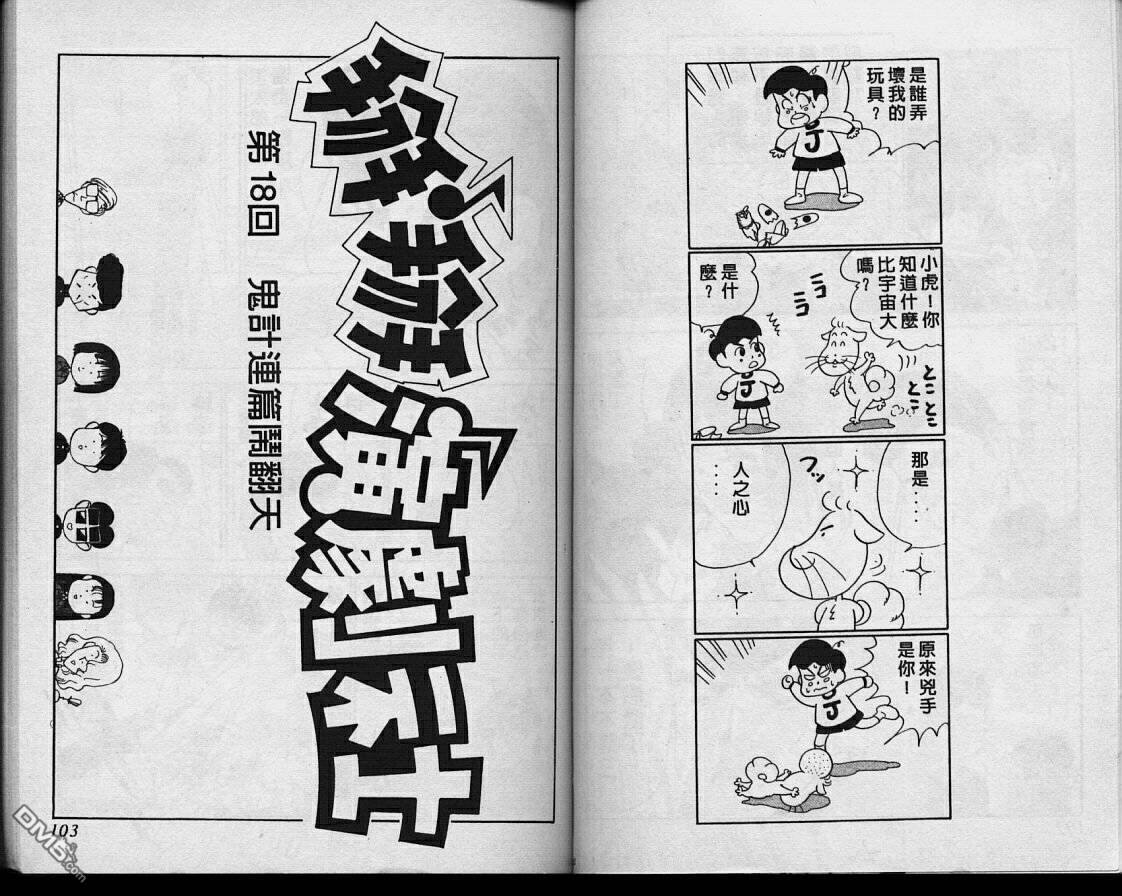 是誰弄
壞我的
玩具？
小虎！你
知道什麼
比宇宙大
嗎？
とこ
とこ
とこ
ニコ
ニコ
是什
麼？
那是....
フッ
人之心
....
原來兇手
是你！
演劇社
第18回 鬼計連篇鬧翻天
103
DM5.com